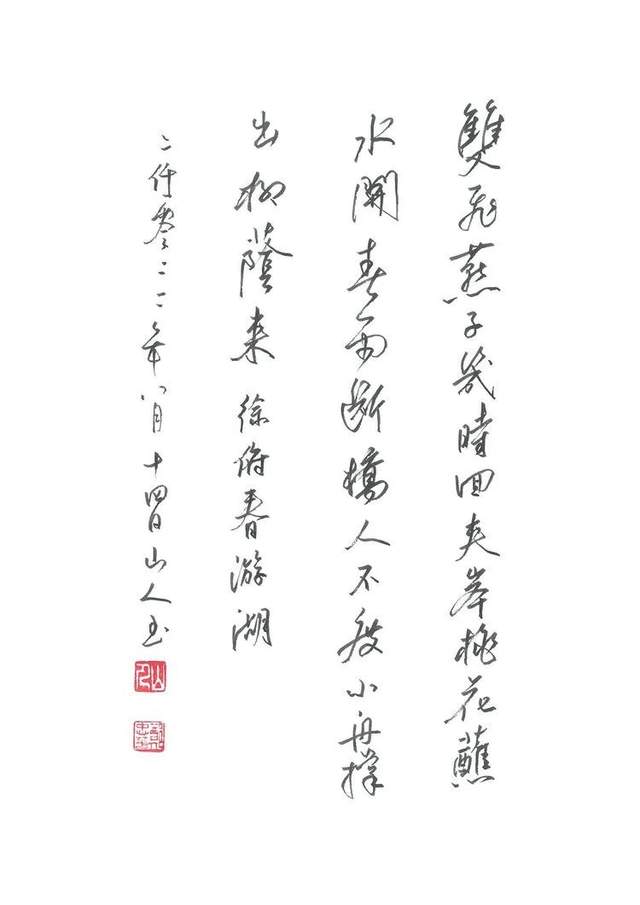 雙飛燕子幾時回夾岸桃花蘸
水開春雨斷橋人不度小舟撐
出柳蔭來 徐俯春游湖
二仟零二二年八月十四日山人书
山人